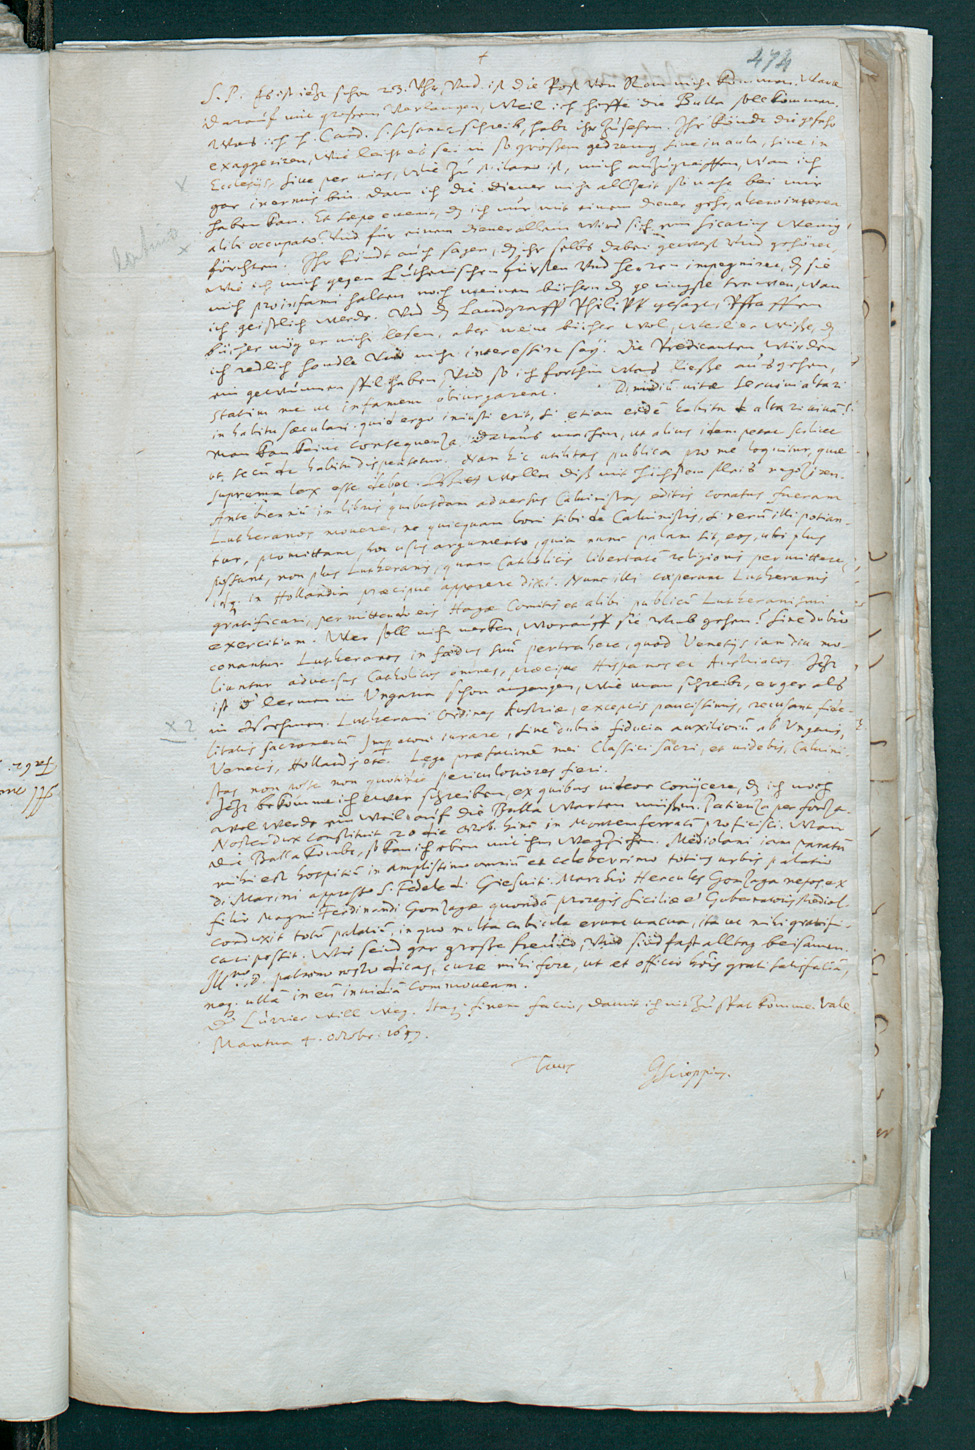 474
+
S. P. Es ist ietzt schon 23. Uhr, Und ist die Post von Rom nicht kommen. Warte
darauf mit großem Verlangen, Weil ich hoffe die Bulla soll kommen.
Was ich h. Card. S. Susannæ schreib, habt ihr zusehen. Ihr köndt die gefahr
exaggeriren, wie leicht es sei in so großem gedreng sive in aula, sive in
Ecclesijs, sive per vias, wie zu Milano ist, mich anzugreiffen, wan ich
gar inermis bin. dann ich die diener nicht allzeit so nahe bei mir
haben kan. Et sæpe evenit, dz ich nur mit einem diener gehe, altero interea
alibi occupato. Und für einem diener allein wird sich ein sicarius wenig
förchten. Ihr köndt auch sagen, dz ihr selbs dabei gewest und gehöret
wie ich mich gegen Lutherischen fürsten und herren impegniret, dz sie
mich pro infami halten noch meinen büchern dz geringste trauen, wan
ich geistlich werde. Und dz Landgraff Philipp gesagt, Pfaffen
bücher mög er nicht lesen, aber meine bücher wol, weil er wisse, dz
ich redlich handle und nicht interessirt sey. Die Predicanten würden
ein gewunnen spil haben, und so ich forthin was liesse ausgehen,
statim me ut infamem obiurgarent. Dimidiũ vitæ servivi altari
in habitu sæculari. quid ergo iniusti erit, si etiam eodẽ habitu de altari vivam?
Man kan keine consequenza daraus machen, ut alius idem petat scilicet
ut secũ de habitu dispensetur. Nam hic utilitas publica pro me loquitur, quæ
suprema lex esse debet. Ihr wollet diß mit höchstem fleiß negoziren.
Ante biennium in libris quibusdam adversus Calvinistas editis conatus fueram
Lutheranos monere, ne quicquam boni sibi de Calvinistis, si rerũ illi potian-
tur, promittant, hoc usus argumento, quia nunc palam sit, eos, ubi plus
possunt, non plus Lutheranis, quam Catholicis libertatẽ religionis permittere
idq. in Hollandia præcipue apparere dixi. Nunc illi cœperunt Lutheranis
gratificari, permittendo eis Hagæ Comitis et alibi publicũ Lutheranismi
exercitium. Wer soll nicht merken, worauff sie umb gehen? Sine dubio
conantur Lutheranos in fœdus suũ pertrahere, quod Venetijs iam diu mo-
liuntur adversus Catholicos omnes, præcipue Hispanos et Austriacos. Jetzt
ist dz lermen in Ungarn schon angangen, wie man schreibt, erger als
in Boehmen. Lutherani Ordines Austriæ, exceptis paucissimis, recusant fide-
litatis sacramentũ Imperatori iurare, sine dubio fiducia auxiliorũ ab Ungaris,
Venetis, Hollandis etc. Lege præfationẽ mei Classici Sacri, et videbis, Calvini-
stas non posse non quotidie periculosiores fieri.
Jetzt bekomme ich ewer schreiben, ex quibus videor conijcere, dz ich noch
wol werde ein weil auf die Bulla warten müssen. Patienza per forza.
Noster dux constituit 20 die Octob. hinc in Montemferratũ proficisci. Wan
die Bulla kombt, so kan ich eben mit ihm wegziehen. Mediolani iam paratũ
mihi est hospitiũ in amplissimo omniũ et celeberrimo totius urbis palatio
di Marini appresso S. Fedele di Giesuiti. Marchio Hercules Gonzaga nepos ex
filio Magni Ferdinandi Gonzagæ quondã proregis Siciliæ et Gubernatoris Mediol.
conduxit totũ palatiũ, in quo multa cubicula erant vacua, ita ut mihi gratifi-
cari possit. Wir seind gar grosse freund, und sind fast alltag beisamen.
Ill.mo D. patrono nostro dicas, curæ mihi fore, ut et officio bõis grati satisfaciã,
neq. ullã in eũ invidiã commoveam.
Dz Currier will weg. Itaq. finem facio, damit ich nit zu spat komme. Vale.
Mantua 4. Octobr. 1619.
Tuus GScioppius.
x 2